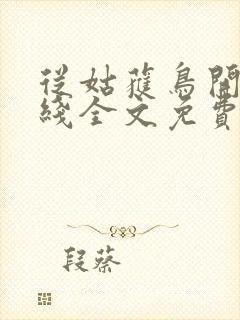 從姑蓷鳥開
綫全文免費
段蔡